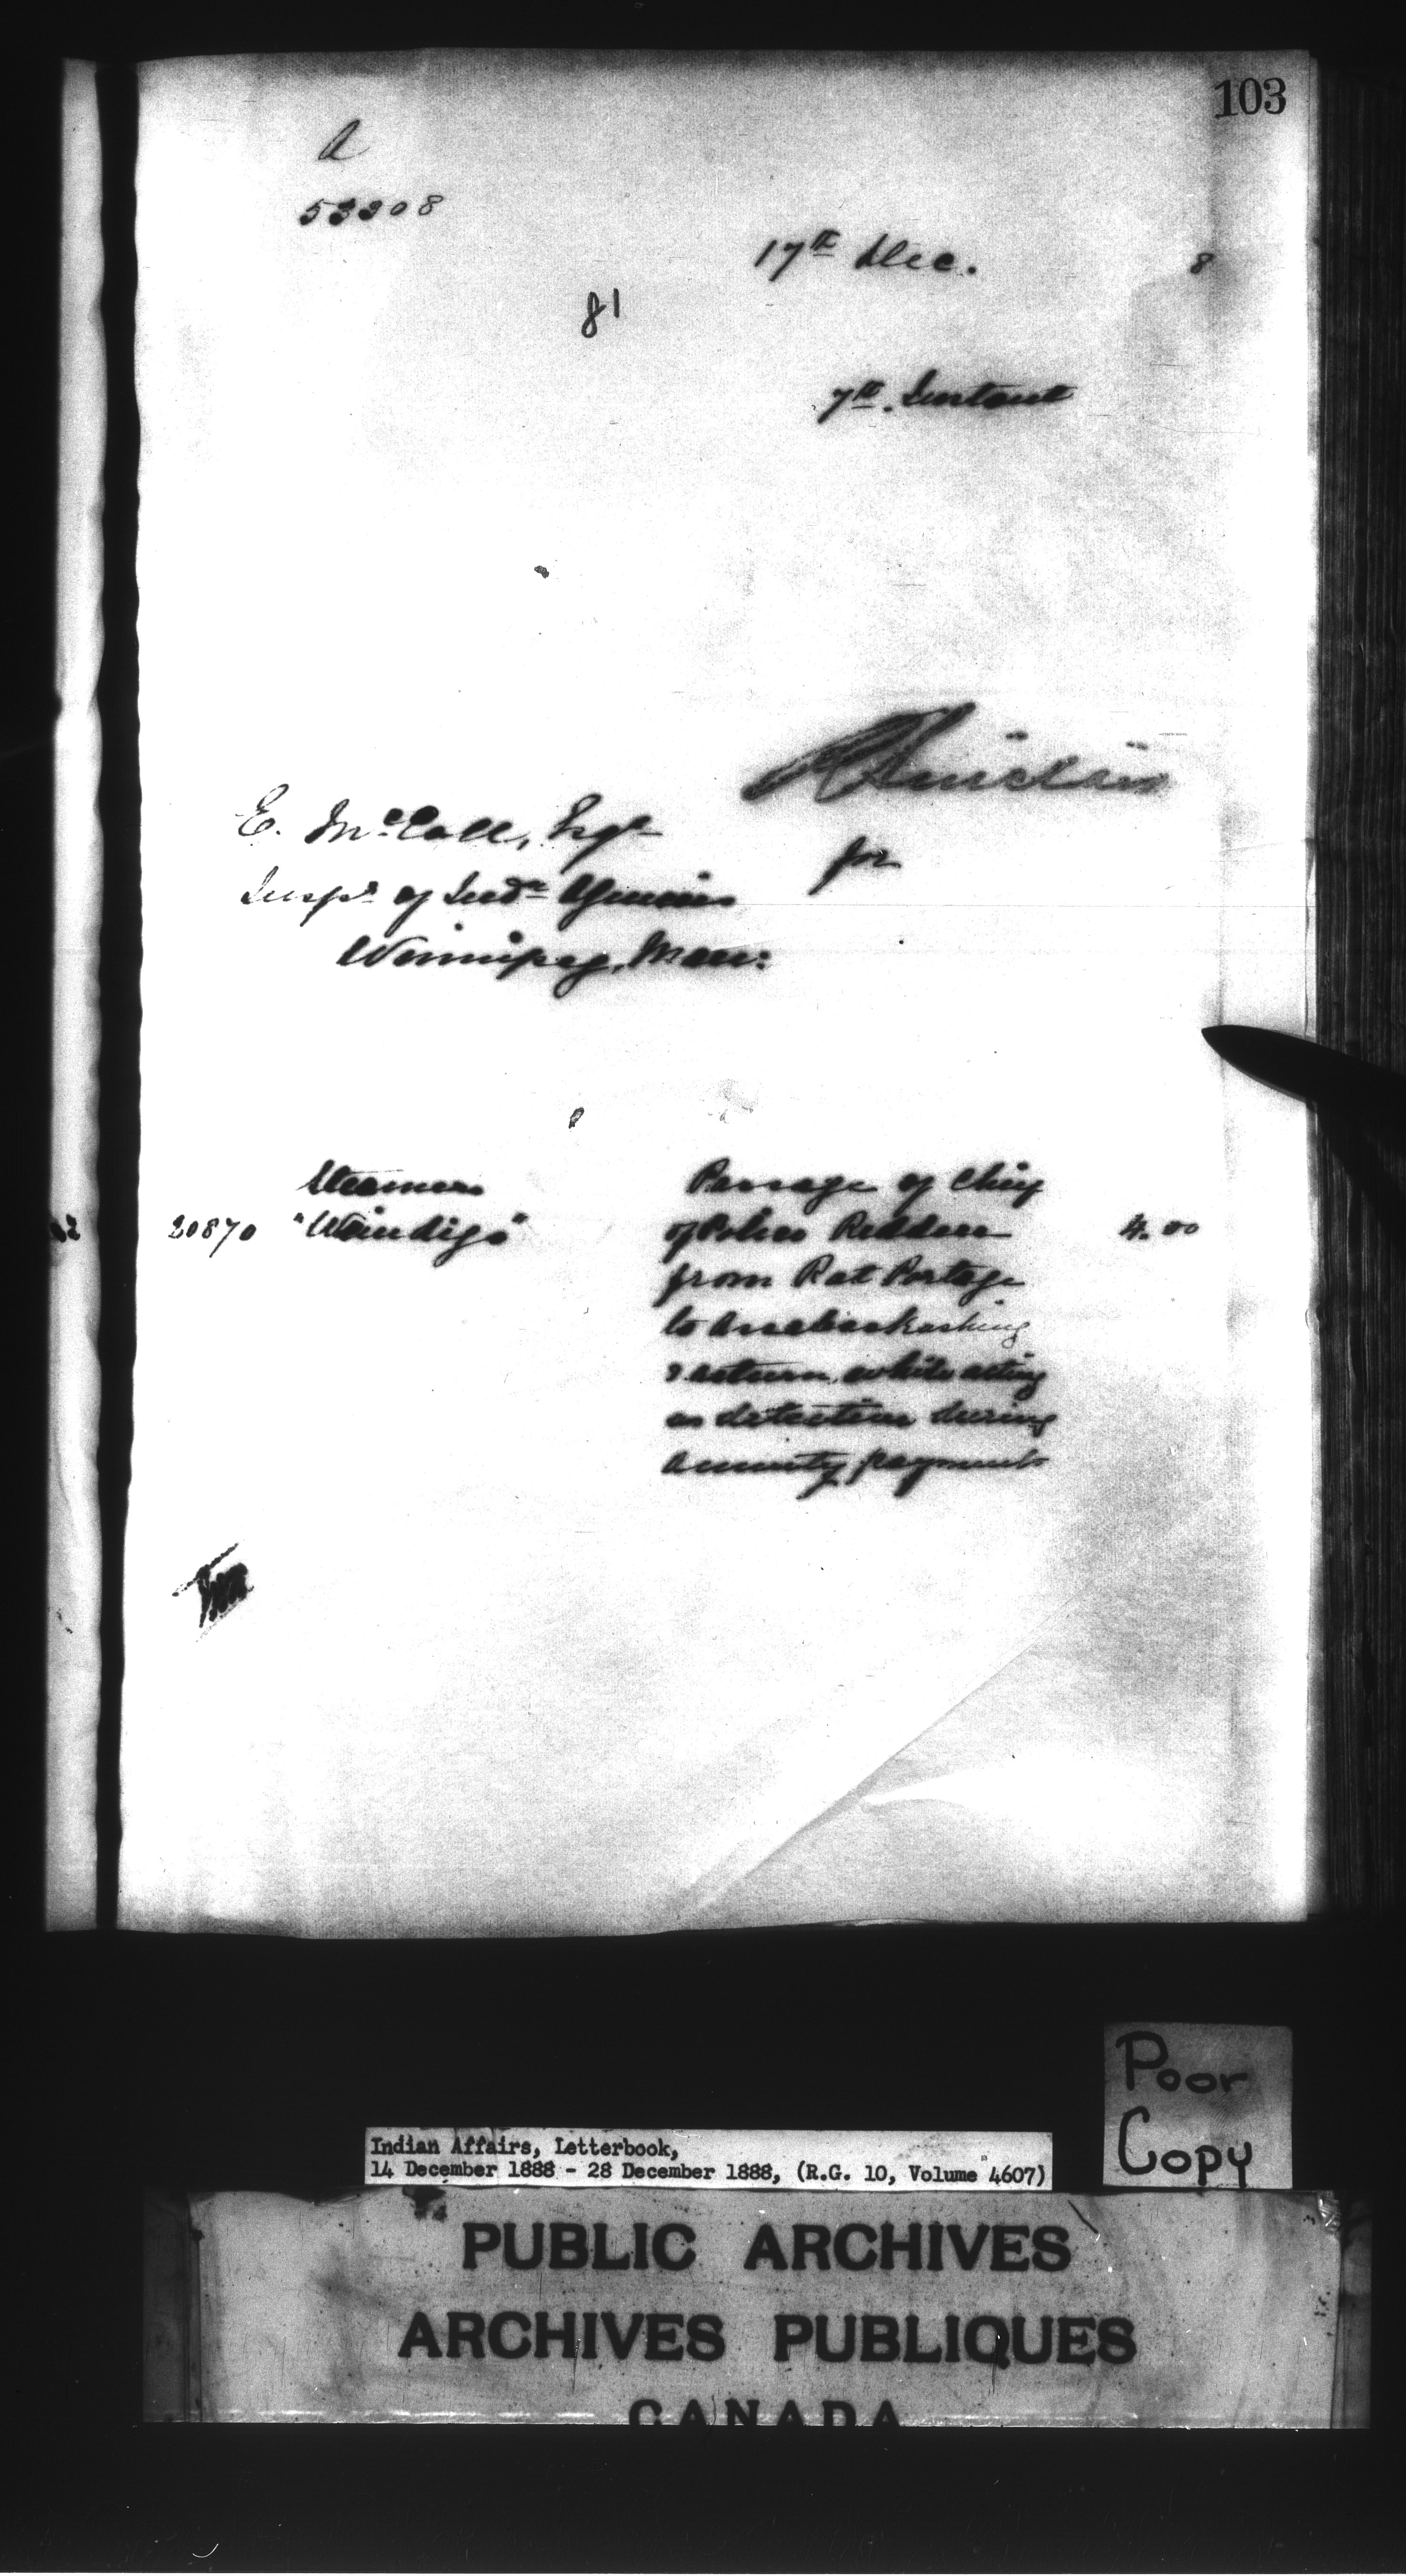 103
A
53308
17th Dec. 8
81
7th. Instant
R Sinclair
for
E. McColl, Esqre
Inspr of Indn Agencies
Winnipeg, Man:
Steamer Passage of Chief
20870 "Waindigo" of Police Redden 4.00
from Rat Portage
to Assabaskashing
& return while acting
as detective during
annuity payments
Poor
Copy
Indian Affairs, Letterbook,
14 December 1888 - 28 December 1888, (R.G. 10, Volume 4607)
PUBLIC ARCHIVES
ARCHIVES PUBLIQUES
CANADA